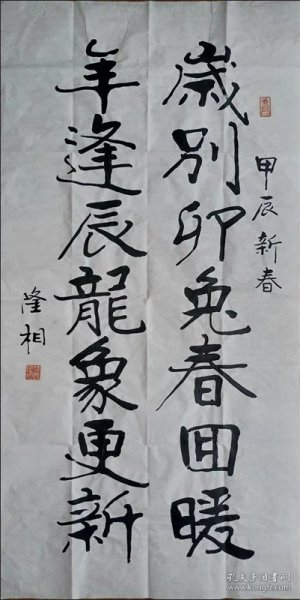 甲辰新春
歲别卯兔春回暖
年逢辰龍象更新
隆相
孔夫子旧书网